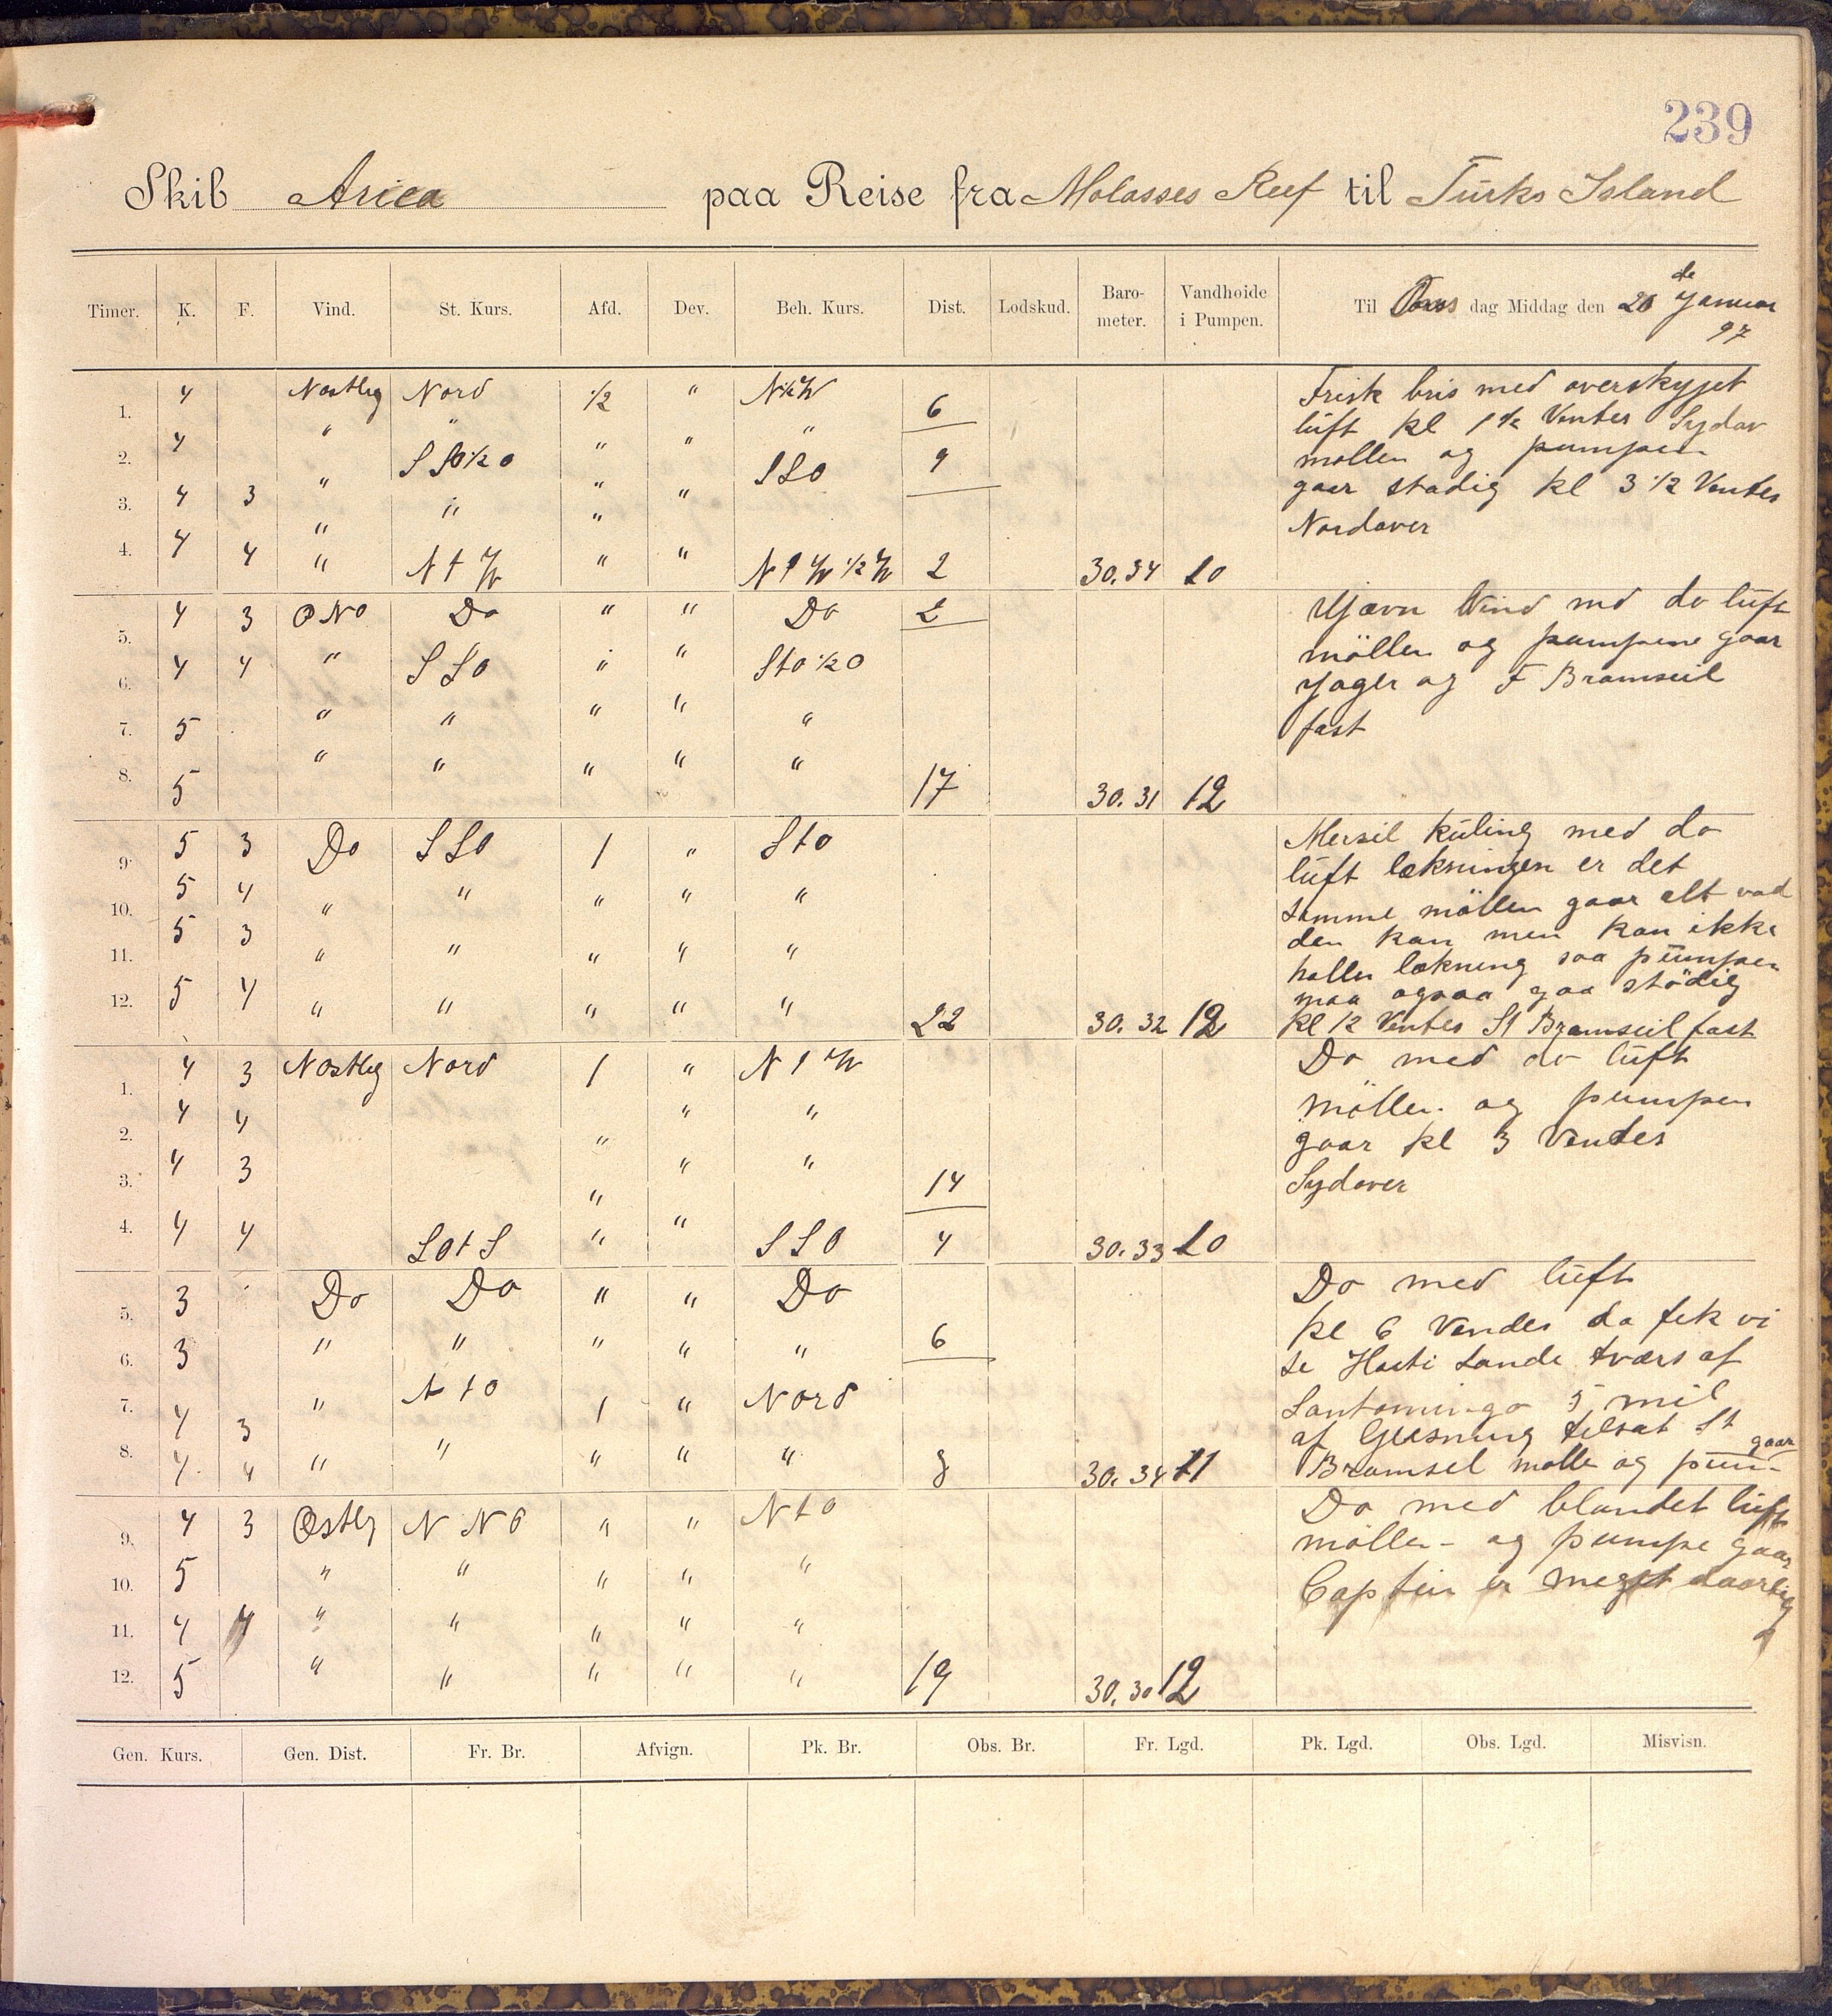 239
Skib Arica paa Reise fra Molasses Reef til Turks Island
Timer. K. F. Vind. St. Kurs. Afd. Dev. Beh. Kurs. Dist. Lodskud. Baro-meter. Vandhoide i Pumpen. Til dag Middag den 20 de Januar 97
1. 4 Nostleg Nord 1/2 " N1/2W 6
2. 4 " " " " " 9
3. 4 3 " SSO1/2O " " SSO
4. 4 4 " N t W " " N t W 1/2 W 2 30.34 10
Frisk bris med overskyjet
luft kl 1 1/2 Venter Sydov
mollen og pumpen
gaar stadig kl 3 1/2 Ventes
Nordover
5. 4 3 ONO Do " " Do 2
6. 4 4 " SSO " " Sto1/2O
7. 5 " " " " "
8. 5 " " " " " 17 30.31 12
Jævn Vind md do luft
möllen og pumpene gaar
Jager og F Bramseil
fast
9. 5 3 Do SSO 1 " StO
10. 5 4 " " " " "
11. 5 3 " " " " "
12. 5 4 " " " " " 22 30.32 12
Mersil kuling med do
luft lækningen er det
samme möllen gaar alt vad
den kan men kan ikke
holle lækning saa pumpen
maa ogsaa gaa stödig
kl 12 Ventes St Bramseil fast
1. 4 3 Nostleg Nord 1 " N t W
2. 4 4 " " "
3. 4 3 " " " 14
4. 4 4 SOtS " " SSO 4 30.33 10
Do med do luft
möllen og pumpen
gaar kl 3 Vendes
Sydover
5. 3 Do Do " " Do
6. 3 " " " " " 6
7. 4 3 " N t O 1 " Nord
8. 4 4 " " " " " 8 30.34 11
Do med luft
kl 6 Vendes da fek vi
se Haiti Lande tværs af
Santomingo 5 mil
af Gissning tilsat St
Bramsel molle og pum- gaar
9. 4 3 Østleg NNO " " NtO
10. 5 " " " " "
11. 4 4 " " " " "
12. 5 " " " " " 19 30.30 12
Do med blandet luft
möllen - og pumpe gaar
Captein er meget daarlig
Gen. Kurs. Gen. Dist. Fr. Br. Afvign. Pk. Br. Obs. Br. Fr. Lgd. Pk. Lgd. Obs. Lgd. Misvisn.